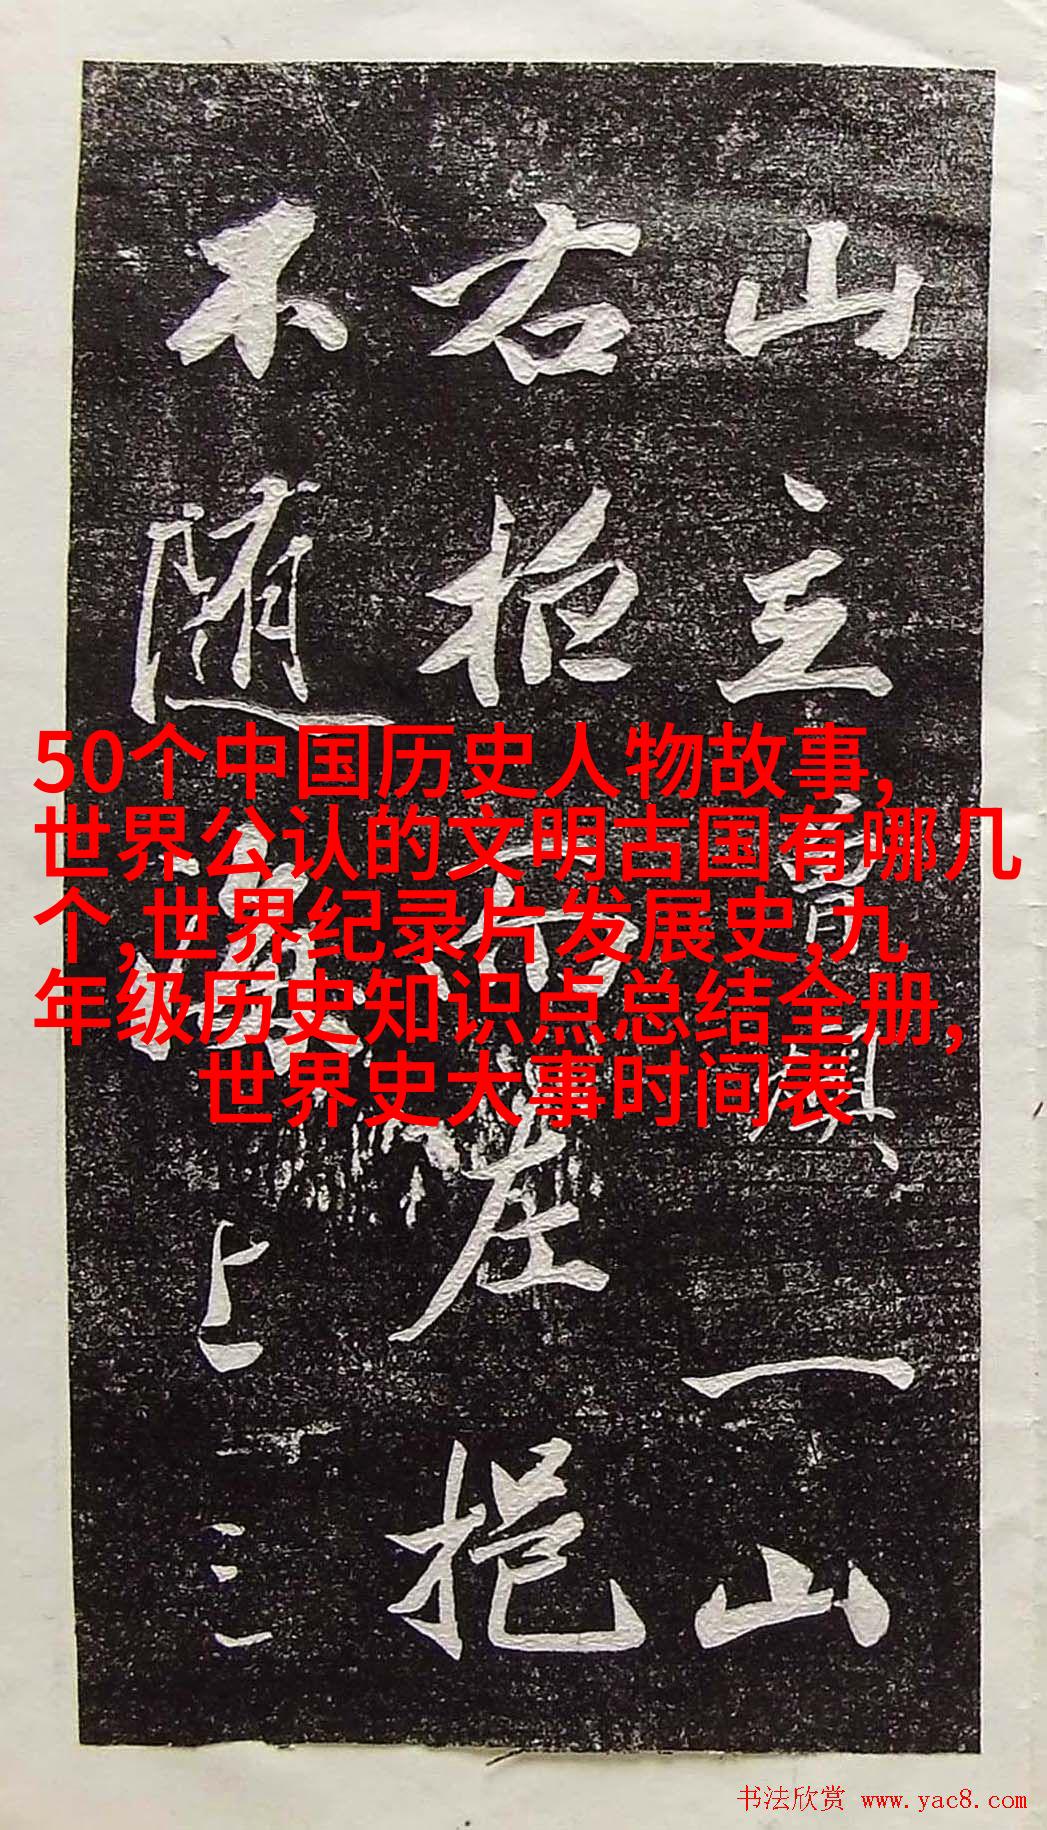 山主音頭、一山
右柜而左挹
不随
上二三
50个中国历史人物故事,
世界公认的文明古国有哪几
个,世界纪录片发展史,九
年级历史知识点总结全册,
世界史大事时间表
书法欣赏 www.yac8.com